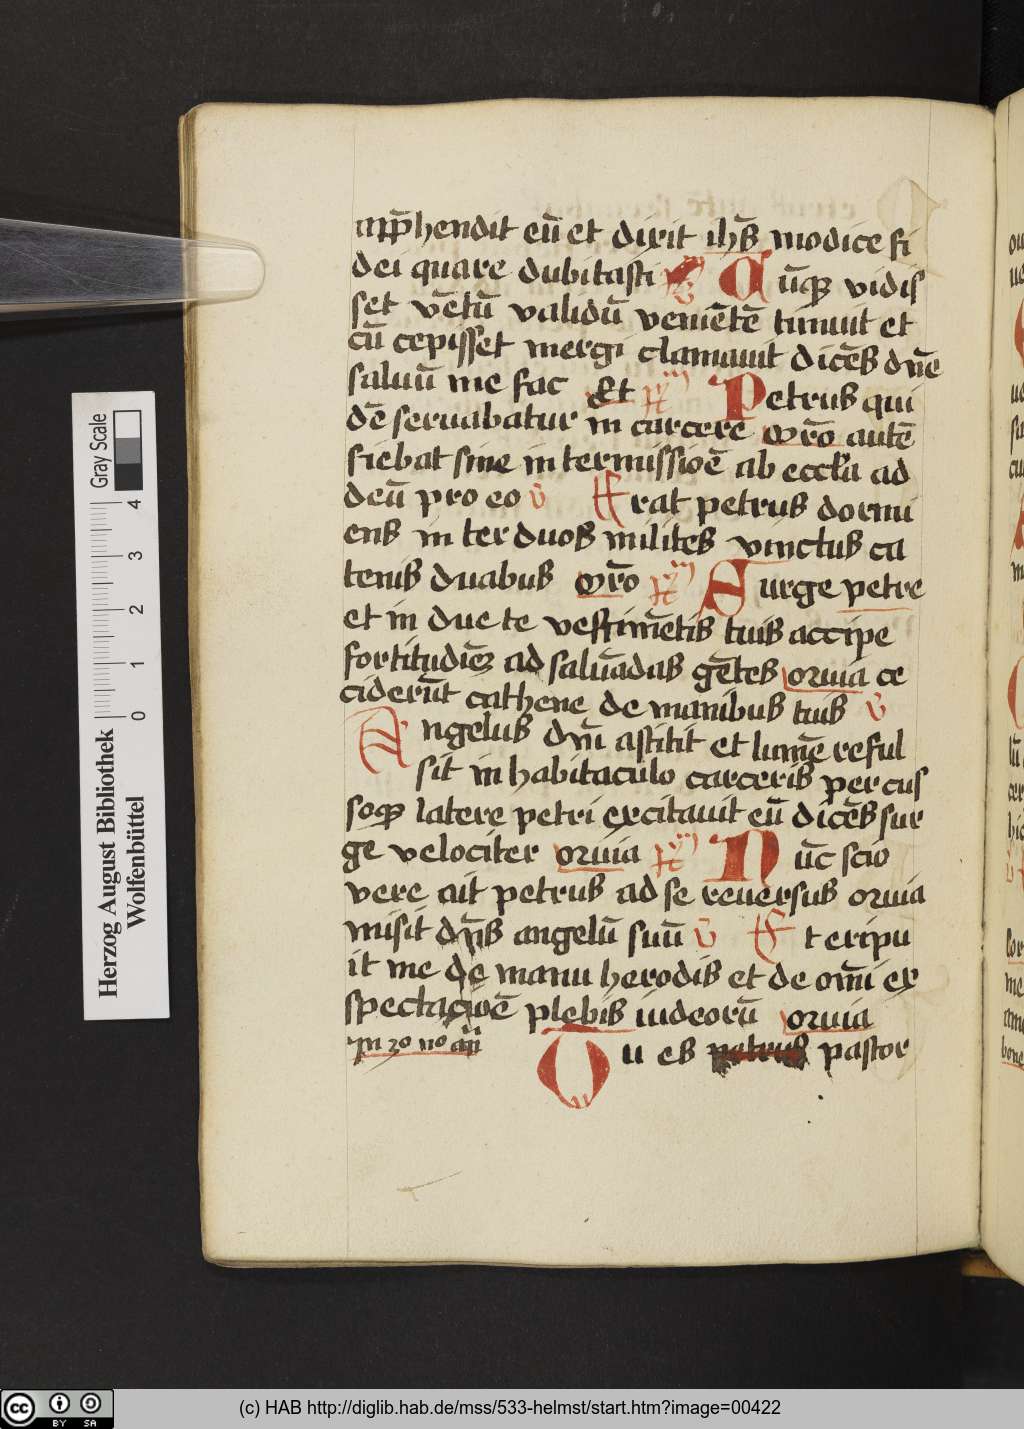 app̄hendit eū et dixit ih̄s modice fi
dei quare dubitasti ℣ Cūq vidis
set vētū validū veniētē timuit et
cū cepisset mergi clamauit dicēs dn̄e
saluū me fac Et Petrus qui
dē seruabatur in carcere Or̄o autē
fiebat sine intermissiōe ab eccl̄a ad
deū pro eo v̄ Erat petrus dormi
ens inter duos milites vinctus ca
tenis duabus Or̄o Surge petre
et indue te vestimētis tuis accipe
fortitudīez ad saluādas gētes qr̄uia ce
ciderūt cathene de manibus tuis v̄
Angelus dn̄i astitit et lumē reful
sit in habitaculo carceris percus
soq latere petri excitauit eū dicēs sur
ge velociter qruia Nūc scio
vere ait petrus ad se reuersus qruia
misit dn̄s angelū suū v̄ Et eripu
it me de manu herodis et de om̄i ex
spectaciōe plebis iudeorū qruia
In 3o no an̄ Tu es petrus pastor
Herzog August Bibliothek
Wolfenbüttel
0 1 2 3 4
Gray Scale
cc BY SA
(c) HAB http://diglib.hab.de/mss/533-helmst/start.htm?image=00422